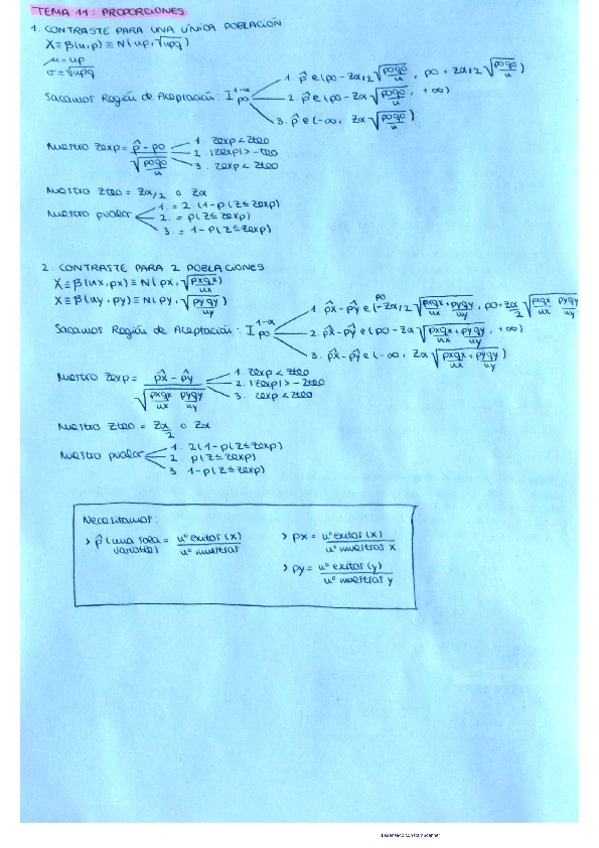 TEMA 11: PROPORCIONES
1. CONTRASTE PARA UNA ÚNICA POBLACIÓN
X ≡ β(n,p) ≡ N(np, √npq)
μ = np
σ = √npq
Sacamos Región de Aceptación: I p0 1-α
1. p̂ ∈ (p0 - zα/2 √(p0q0/n), p0 + zα/2 √(p0q0/n))
2. p̂ ∈ (p0 - zα √(p0q0/n), +∞)
3. p̂ ∈ (-∞, zα √(p0q0/n))
Nuestro zexp = (p̂ - p0) / √(p0q0/n)
1. zexp < zteo
2. |zexp| > -teo
3. zexp < zteo
Nuestro zteo = zα/2 o zα
Nuestro pvalor
1. = 2 (1-p(z≤zexp)
2. = p(z≤zexp)
3. = 1-p(z≤zexp)
2. CONTRASTE PARA 2 POBLACIONES
X ≡ β(nx, px) ≡ N(px, √(pxqx/nx))
X ≡ β(ny, py) ≡ N(py, √(pyqy/ny))
Sacamos Región de Aceptación: I p0 1-α
1. p̂x - p̂y ∈ (p0 - zα/2 √(pxqx/nx + pyqy/ny), p0 + zα/2 √(pxqx/nx pyqy/ny)
2. p̂x - p̂y ∈ (p0 - zα √(pxqx/nx + pyqy/ny), +∞)
3. p̂x - p̂y ∈ (-∞, zα √(pxqx/nx + pyqy/ny))
Nuestro zexp = (p̂x - p̂y) / √(pxqx/nx pyqy/ny)
1. zexp < zteo
2. |zexp| > -zteo
3. zexp < zteo
Nuestro zteo = zα/2 o zα
Nuestro pvalor
1. 2(1-p(z≤zexp)
2. p(z≤zexp)
3. 1-p(z≤zexp)
Necesitamos:
> p̂ (una sola variable) = nº exitos (x) / nº muestras
> px = nº exitos (x) / nº muestras x
> py = nº exitos (y) / nº muestras y